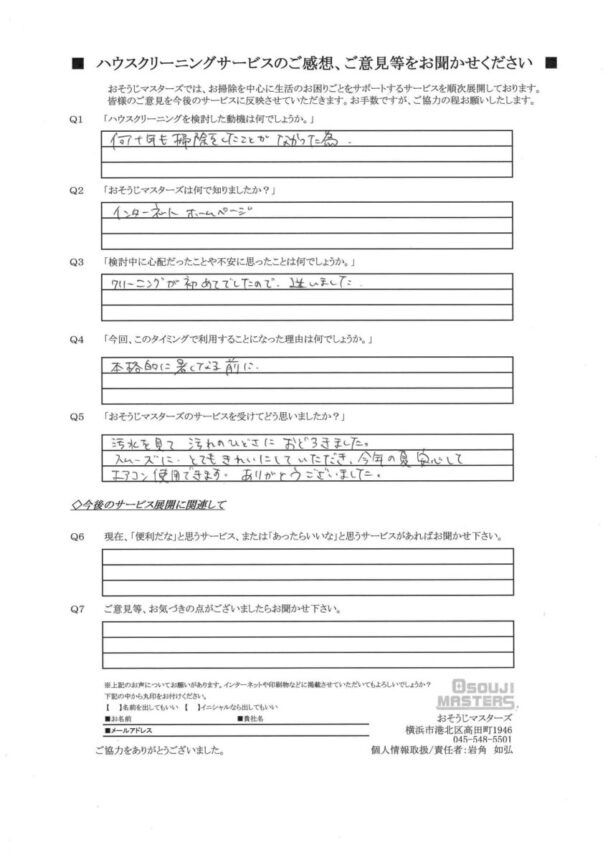 ■ ハウスクリーニングサービスのご感想、ご意見等をお聞かせください ■
おそうじマスターズでは、お掃除を中心に生活のお困りごとをサポートするサービスを順次展開しております。
皆様のご意見を今後のサービスに反映させていただきます。お手数ですが、ご協力の程お願いしたします。
Q1 「ハウスクリーニングを検討した動機は何でしょうか。」
何十年も掃除をしたことがなかった為
Q2 「おそうじマスターズは何で知りましたか？」
インターネット ホームページ
Q3 「検討中に心配だったことや不安に思ったことは何でしょうか。」
クリーニングが初めてでしたので、迷いました.
Q4 「今回、このタイミングで利用することになった理由は何でしょうか。」
本格的に暑くなる前に.
Q5 「おそうじマスターズのサービスを受けてどう思いましたか？」
汚水を見て 汚れのひどさに おどろきました。
スムーズに、とてもきれいにしていただき、今年の夏 安心して
エアコン使用できます. ありがとうございました。
◇今後のサービス展開に関連して
Q6 現在、「便利だな」と思うサービス、または「あったらいいな」と思うサービスがあればお聞かせ下さい。
Q7 ご意見等、お気づきの点がございましたらお聞かせ下さい。
※上記のお声についてお願いがあります。インターネットや印刷物などに掲載させていただいてもよろしいでしょうか？
下記の中から丸印をお付けください。
【 】名前を出してもいい 【 】イニシャルなら出してもいい
■お名前 ■貴社名
■メールアドレス
ご協力をありがとうございました。
OSOUJI
MASTERS
おそうじマスターズ
横浜市港北区高田町1946
045-548-5501
個人情報取扱/責任者：岩角 如弘